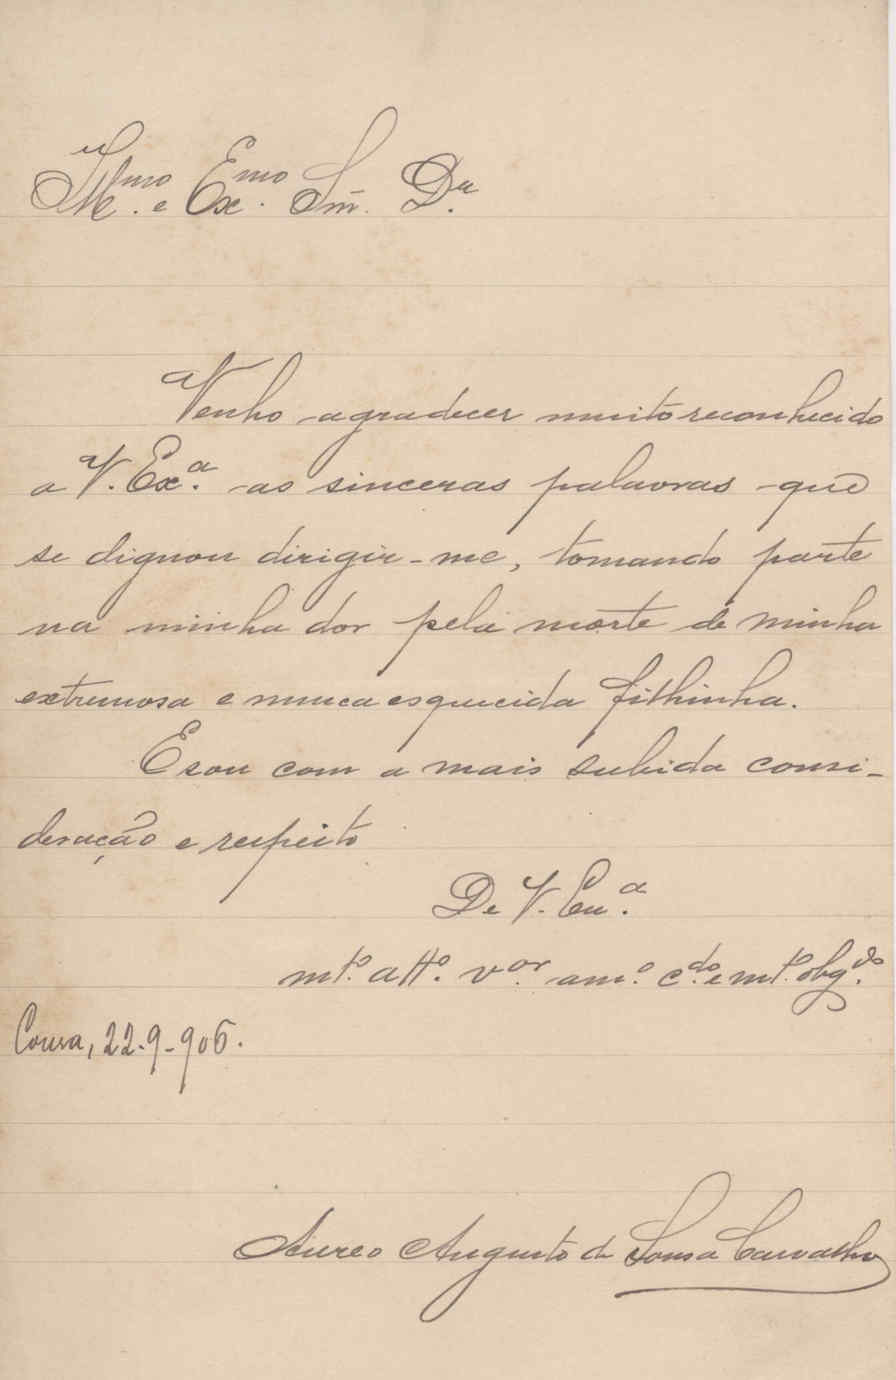 Illmo. e Exmo. Snr. Dr.
Venho agradecer muito reconhecido
a V. Exa. as sinceras palavras que
se dignou dirigir-me, tomando parte
na minha dor pela morte de minha
extremosa e nunca esquecida filhinha.
E sou com a mais subida consi-
deração e respeito
De V. Exa.
mto. atto. vor. amo. cdo. e mto. obgdo.
Coura, 22-9-906.
Aureo Augusto de Sousa Carvalho